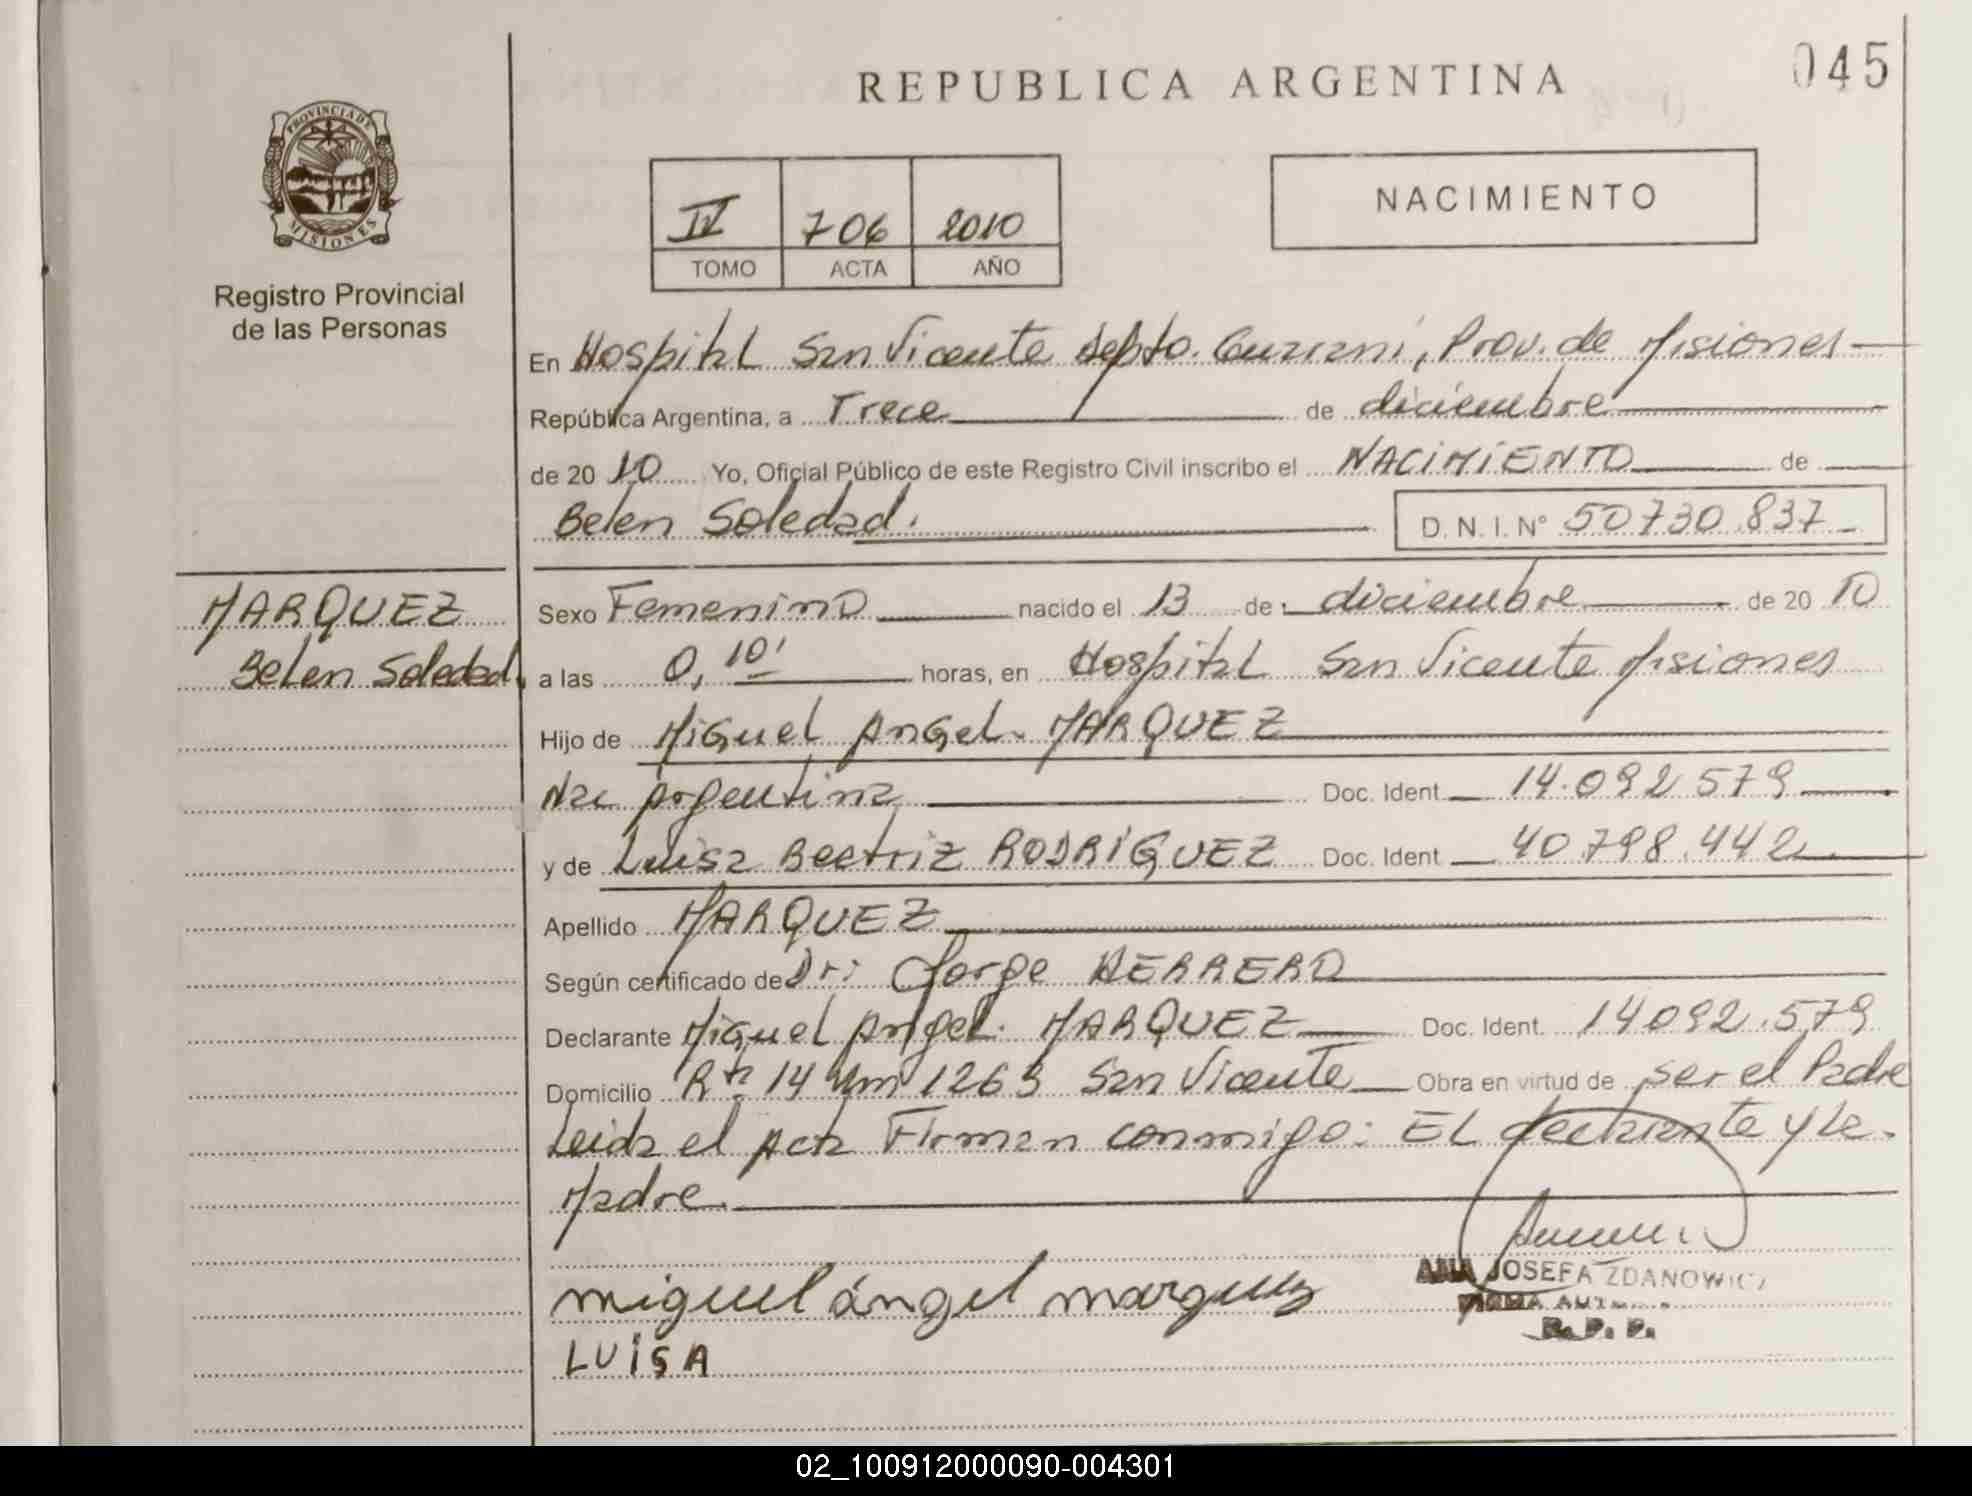 045
REPUBLICA ARGENTINA
PROVINCIA DE
MISIONES
Registro Provincial
de las Personas
IV 706 2010
TOMO ACTA AÑO
NACIMIENTO
En Hospital San Vicente Depto. Guarani, Prov. de Misiones
República Argentina, a Trece de diciembre
de 20 10 Yo, Oficial Público de este Registro Civil inscribo el NACIMIENTO de
Belen Soledad. D. N. I. N° 50730.837
MARQUEZ
Belen Soledad
Sexo Femenino nacido el 13 de diciembre de 20 10
a las 0,10' horas, en Hospital San Vicente Misiones
Hijo de Miguel Angel MARQUEZ
Nac Argentina Doc. Ident 14.092 579
y de Luisa Beatriz RODRIGUEZ Doc. Ident 40.798.442
Apellido MARQUEZ
Según certificado de Dr: Jorge HERRERO
Declarante Miguel Angel MARQUEZ Doc. Ident. 14092.579
Domicilio Rta 14 Km 1263 San Vicente Obra en virtud de ser el Padre
Leida el Acta Firman conmigo: EL declarante y La
Madre.
miguel ángel marquez
LUiSA
ANA JOSEFA ZDANOWICZ
FIRMA AUT
R. P. P.
02_100912000090-004301